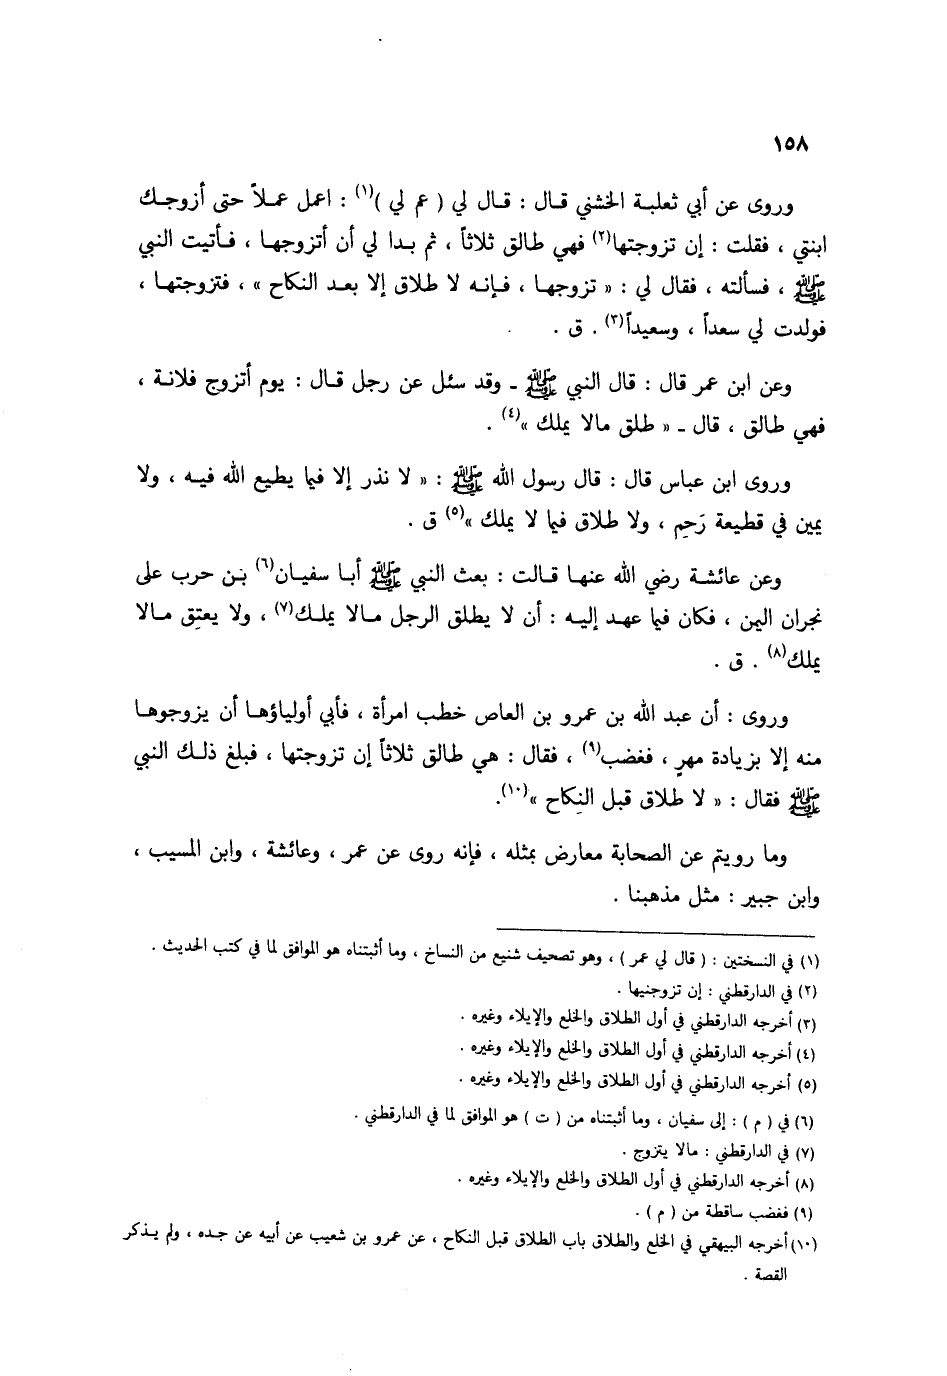 ١٥٨
وروى عن أبي ثعلبة الخشني قال : قال لي ( عم لي )(١) : اعمل عملاً حتى أزوجك
ابنتي ، فقلت : إن تزوجتها(٢) فهي طالق ثلاثاً ، ثم بدا لي أن أتزوجها ، فأتيت النبي
ﷺ ، فسألته ، فقال لي : « تزوجها ، فإنه لا طلاق إلا بعد النكاح » ، فتزوجتها ،
فولدت لي سعداً ، وسعيداً(٣) . ق .
وعن ابن عمر قال : قال النبي ﷺ ـ وقد سئل عن رجل قال : يوم أتزوج فلانة ،
فهي طالق ، قال ـ « طلق مالا يملك »(٤) .
وروى ابن عباس قال : قال رسول الله ﷺ : « لا نذر إلا فيما يطيع الله فيه ، ولا
يمين في قطيعة رَحِم ، ولا طلاق فيما لا يملك »(٥) ق .
وعن عائشة رضي الله عنها قالت : بعث النبي ﷺ أبا سفيان(٦) بن حرب على
نجران اليمن ، فكان فيما عهد إليه : أن لا يطلق الرجل مالا يملك(٧) ، ولا يعتِق مالا
يملك(٨) . ق .
وروى : أن عبد الله بن عمرو بن العاص خطب امرأة ، فأبي أولياؤها أن يزوجوها
منه إلا بزيادة مهرٍ ، فغضب(٩) ، فقال : هي طالق ثلاثاً إن تزوجتها ، فبلغ ذلك النبي
ﷺ فقال : « لا طلاق قبل النِكاح »(١٠).
وما رويتم عن الصحابة معارض بمثله ، فإنه روى عن عمر ، وعائشة ، وابن المسيب ،
وابن جبير : مثل مذهبنا .
(١) في النسختين : ( قال لي عمر ) ، وهو تصحيف شنيع من النساخ ، وما أثبتناه هو الموافق لما في كتب الحديث .
(٢) في الدارقطني : إن تزوجنيها .
(٣) أخرجه الدارقطني في أول الطلاق والخلع والإيلاء وغيره .
(٤) أخرجه الدارقطني في أول الطلاق والخلع والإيلاء وغيره .
(٥) أخرجه الدارقطني في أول الطلاق والخلع والإيلاء وغيره .
(٦) في ( م ) : إلى سفيان ، وما أثبتناه من ( ت ) هو الموافق لما في الدارقطني .
(٧) في الدارقطني : مالا يتزوج .
(٨) أخرجه الدارقطني في أول الطلاق والخلع والإيلاء وغيره .
(٩) فغضب ساقطة من ( م ) .
(١٠) أخرجه البيهقي في الخلع والطلاق باب الطلاق قبل النكاح ، عن عمرو بن شعيب عن أبيه عن جده ، ولم يذكر
القصة .